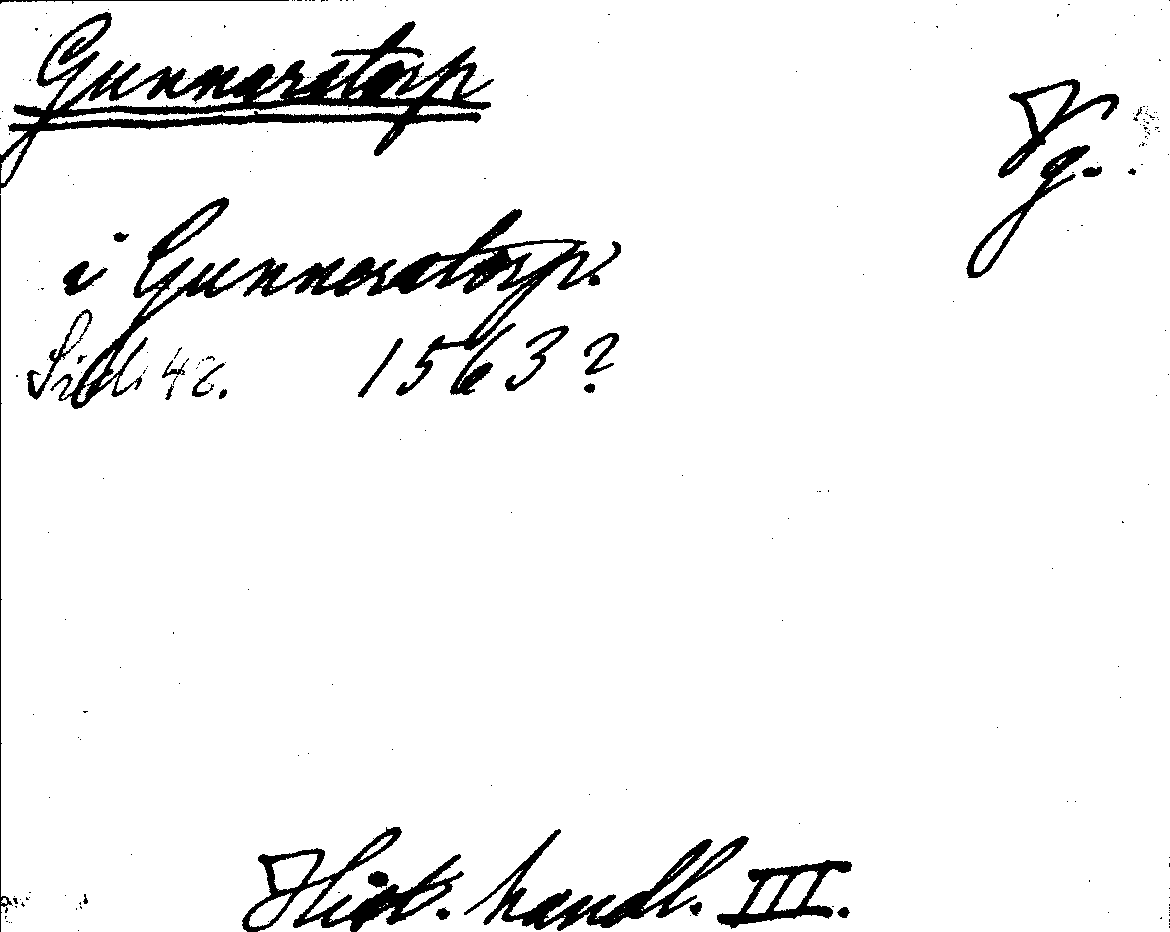 Gunnarstorp
Vg.
i Gunnarstorp.
Sid. 48. 1563?
Hist. handl. III.